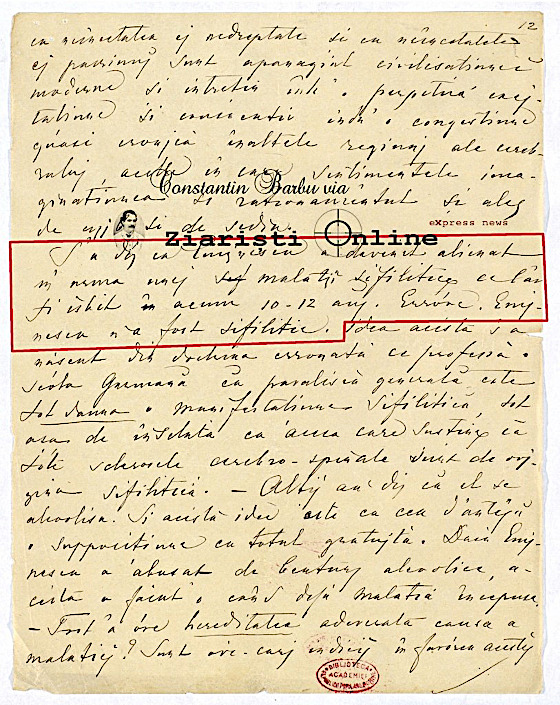 12
cu necunotatele ej nedreptate si cu necunotatele
ej passiunj sunt apanagiul civilisatiunei
moderne si intretin intr' o perpetuă escj-
tatiune si consecutiv intr' o congestiune
quasi cronică inaltele regiunj ale cereb-
rulul, acelea in care sentimentele ima-
Constantin Barbu via
ginatiunea si rationamentul si aleg
de cuj si de sedin.
eXpress news
Ziaristi Online
S'a dis ca Eminescu a devenit alienat
in urma unej malatij sifilitice ce l'ar
fi isbit in acum 10-12 anj. Erróre. Emj-
nescu n'a fost sifilitic. Idea acesta s'a
nascut din doctrina erronată ce professă o
scóla Germană că paralisia generală este
tot danna o manifestatiune sifilitică, tot
asa de insciută ca aceea care sustine că
tóte sclerosele cerebro-spinale sunt de orj-
gina sifilitică. — Altij au dis că el se
alcoolisa. Si acestă idee este ca cea d'antêiu
o suppositiune cu totul gratuită. Dacă Emj-
nescu a abusat de beuturj alcoolice, a-
cesta a facut'o când déjà malatia incepuse.
— Fost'a óre hereditatea adeverata causa a
malatiej? Sunt óre-carj indicij in favórea acestej
BIBLIOTECA
ACADEMIEI